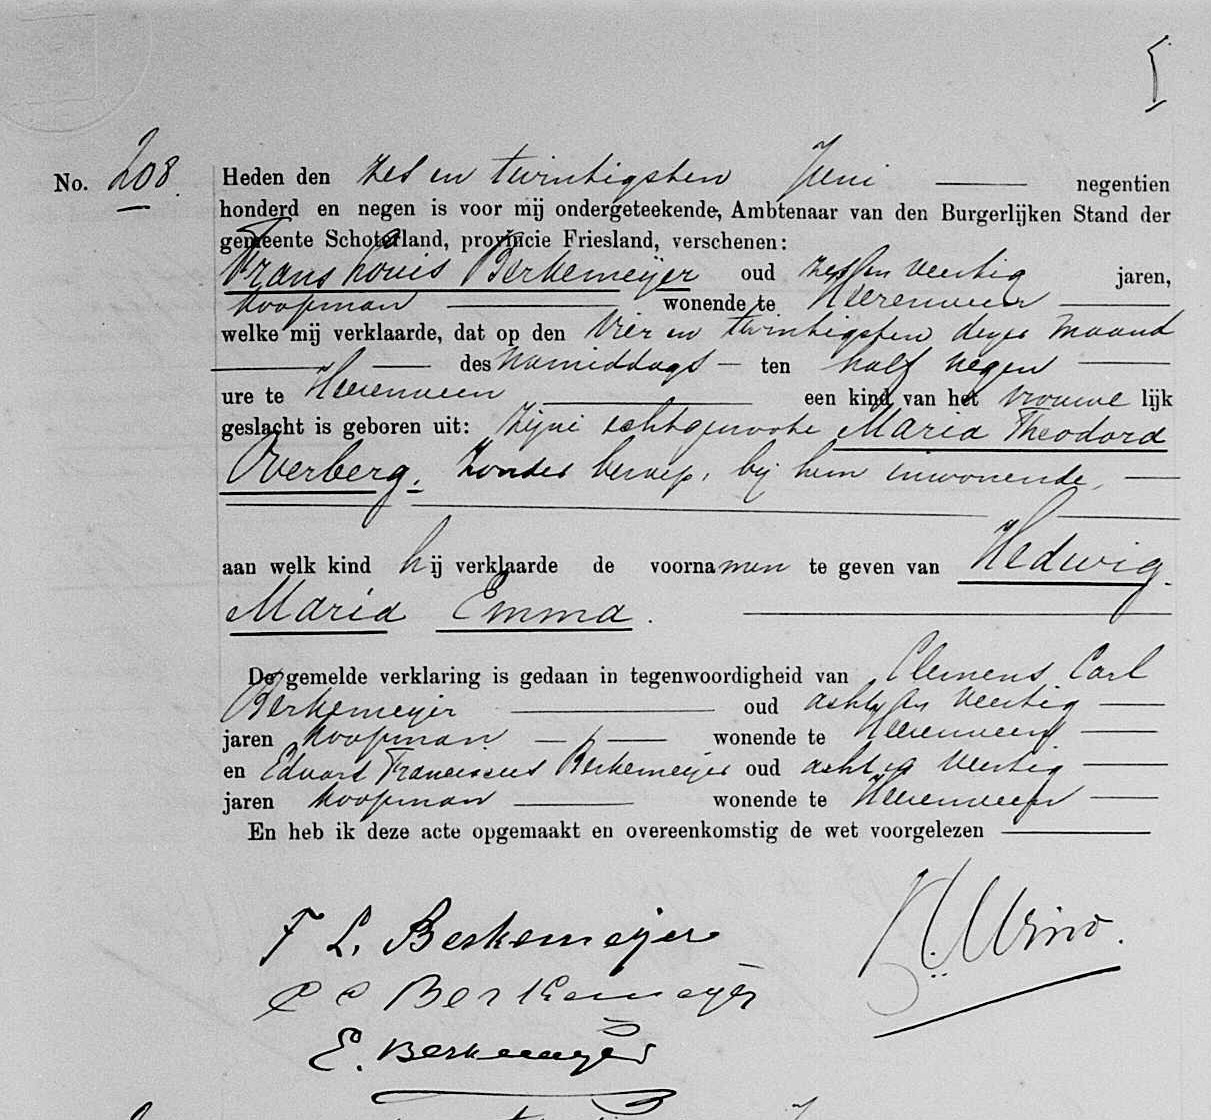 No. 208.
Heden den zes en twintigsten Juni negentien
honderd en negen is voor mij ondergeteekende, Ambtenaar van den Burgerlijken Stand der
gemeente Schoterland, provincie Friesland, verschenen:
Frans Louis Berkemeijer oud zes en veertig jaren,
koopman wonende te Heerenveen
welke mij verklaarde, dat op den vier en twintigsten dezer maand
des namiddags ten half negen
ure te Heerenveen een kind van het vrouwelijk
geslacht is geboren uit: zijne echtgenoote Maria Theodora
Overberg, zonder beroep, bij hem inwonende,
aan welk kind hij verklaarde de voornamen te geven van Hedwig
Maria Emma.
De gemelde verklaring is gedaan in tegenwoordigheid van Clemens Carl
Berkemeijer oud acht en veertig
jaren koopman wonende te Heerenveen
en Eduard Franciscus Berkemeijer oud acht en veertig
jaren koopman wonende te Heerenveen
En heb ik deze acte opgemaakt en overeenkomstig de wet voorgelezen
F L. Berkemeijer
C C Berkemeijer
E. Berkemeijer